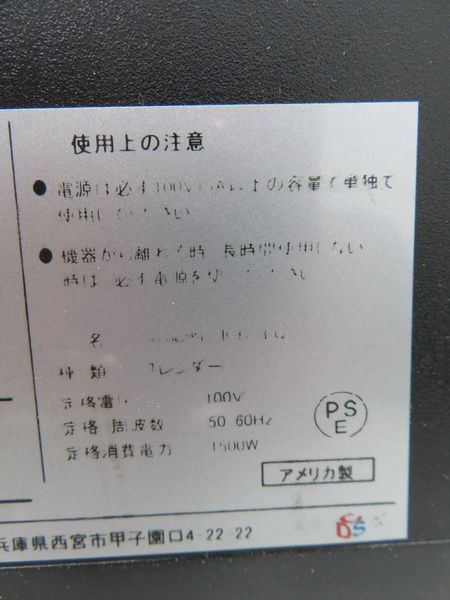 使用上の注意
● 電源は必ず100V の容量で単独で
使用してください
● 機器から離れる時 長時間使用しない
時は 必ず電源を切ってください
名
種類 ブレンダー
定格電圧 100V
定格周波数 50 60Hz
定格消費電力 1500W
PS
E
アメリカ製
兵庫県西宮市甲子園口4-22-22